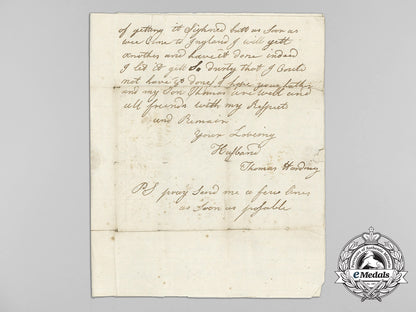 of getting it Sighned butt as Soon as
wee Come to England I will gett
another and have it done indeed
I let it gett So Durty that I Could
not have it done I hope your father
and my Son Thomas are well and
all friends with my Respects
and Remain
Your Loveing
Husband
Thomas Harding
PS pray Send me a few lines
as Soon as posable
eMedals